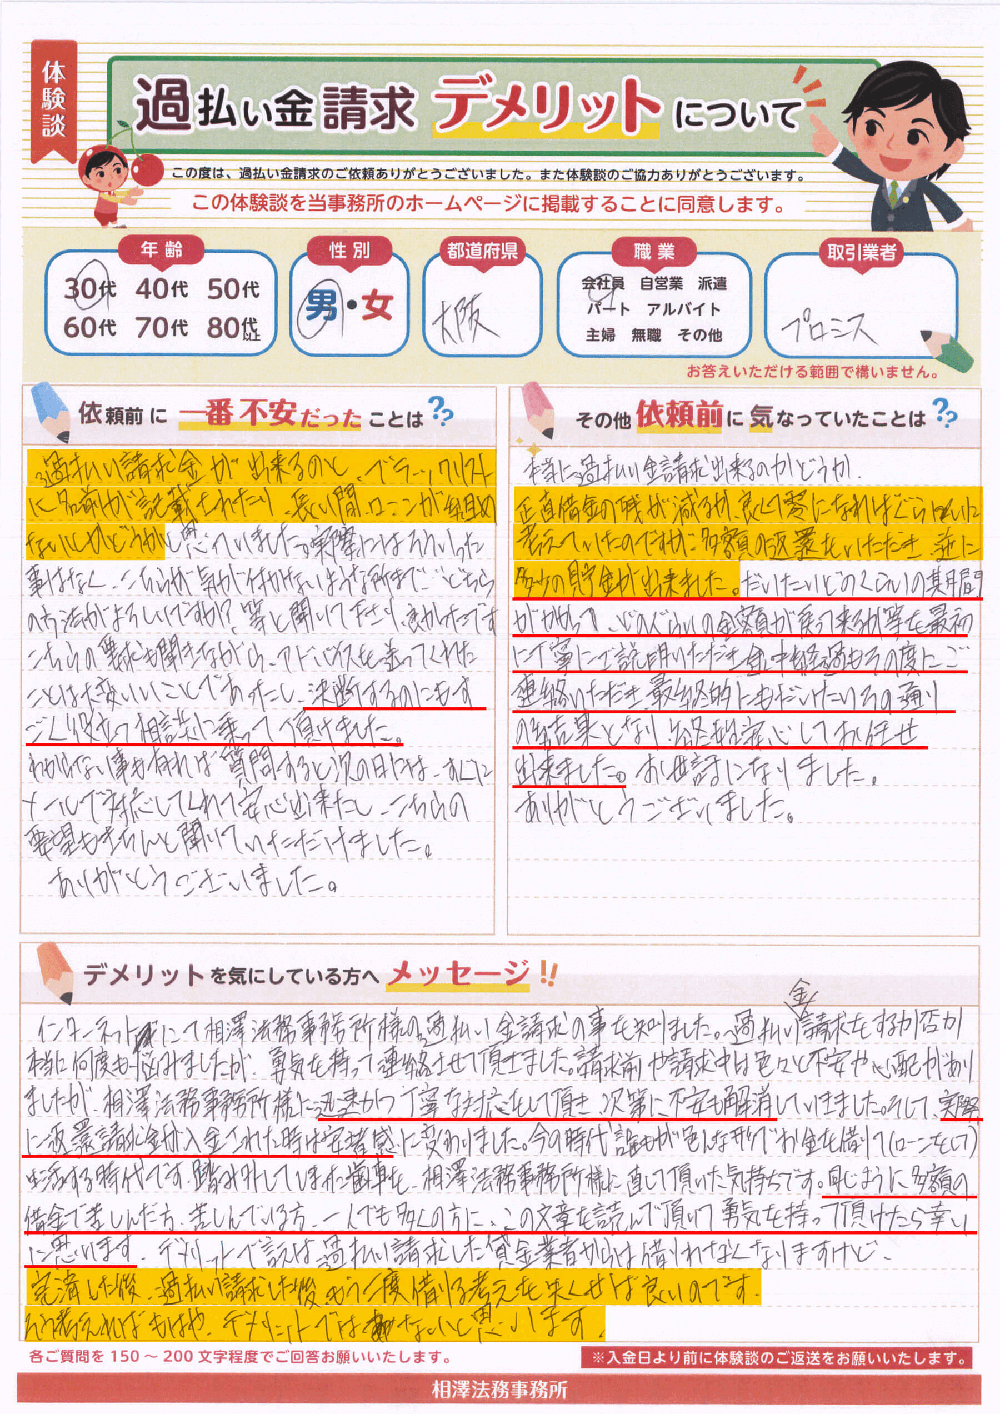 体験談
過払い金請求 デメリットについて
この度は、過払い金請求のご依頼ありがとうございました。また体験談のご協力ありがとうございます。
この体験談を当事務所のホームページに掲載することに同意します。
年齢 性別 都道府県 職業 取引業者
30代 40代 50代
60代 70代 80代以上
男・女
大阪
会社員 自営業 派遣
パート アルバイト
主婦 無職 その他
プロミス
お答えいただける範囲で構いません。
依頼前に一番不安だったことは??
過払い請求金が出来るのと、ブラックリスト
に名前が記載されたり、長い間、ローンが組め
ないとかどうかと思っていました。実際にはそういった
事はなく、こちらが気が付かないような所まで…どちら
の方法がよろしいですか?等と聞いてたり、良かったです
こちらの要求も聞きながら、アドバイスを送ってくれた
ことは大変いいことであったし、決断するのにもす
ごく役立つ相談に乗って頂けました。
わからない事も有れば質問すると次の日には、すぐに
メールで対応してくれて安心出来たし、こちらの
要望もきちんと聞いていただけました。
ありがとうございました。
その他依頼前に気なっていたことは??
本当に過払い金請求出来るのかどうか、
正直借金の残が減るか、良くて零になればぐらいに
考えていたのですが、多額の返還をいただき、逆に
多少の貯金が出来ました。だいたいどのくらいの期間
がかかって、どのぐらいの金額が戻って来るか等を最初
に丁寧にご説明いただき、途中経過もその度にご
連絡いただき、最終的にもだいたいその通り
の結果となり、始終安心してお任せ
出来ました。お世話になりました。
ありがとうございました。
デメリットを気にしている方へメッセージ!!
インターネットにて相澤法務事務所様の過払い金請求の事を知りました。過払い金請求をするか否か
本当に何度も悩みましたが、勇気を持って連絡させて頂きました。請求前や請求中は色々と不安や心配があり
ましたが、相澤法務事務所様に迅速かつ丁寧な対応をして頂き、次第に不安も解消していきました。そして、実際
に返還請求金が入金された時は安堵感に変わりました。今の時代誰もが色んな形でお金を借りて(ローンをして)
生活する時代です。踏み外していまた歯車を、相澤法務事務所様に直して頂いた気持ちです。同じように多額の
借金で苦しんだ方、苦しんでいる方、一人でも多くの方に、この文章を読んで頂いて勇気を持って頂けたら幸い
に思います。デメリットで言えば過払い請求した貸金業者からは借りれなくなりますけど、
完済した後、過払い請求した後、もう二度借りる考えを失くせば良いのです。
そう考えればもはや、デメリットではないと思います。
各ご質問を150～200文字程度でご回答お願いいたします。
※入金日より前に体験談のご返送をお願いいたします。
相澤法務事務所